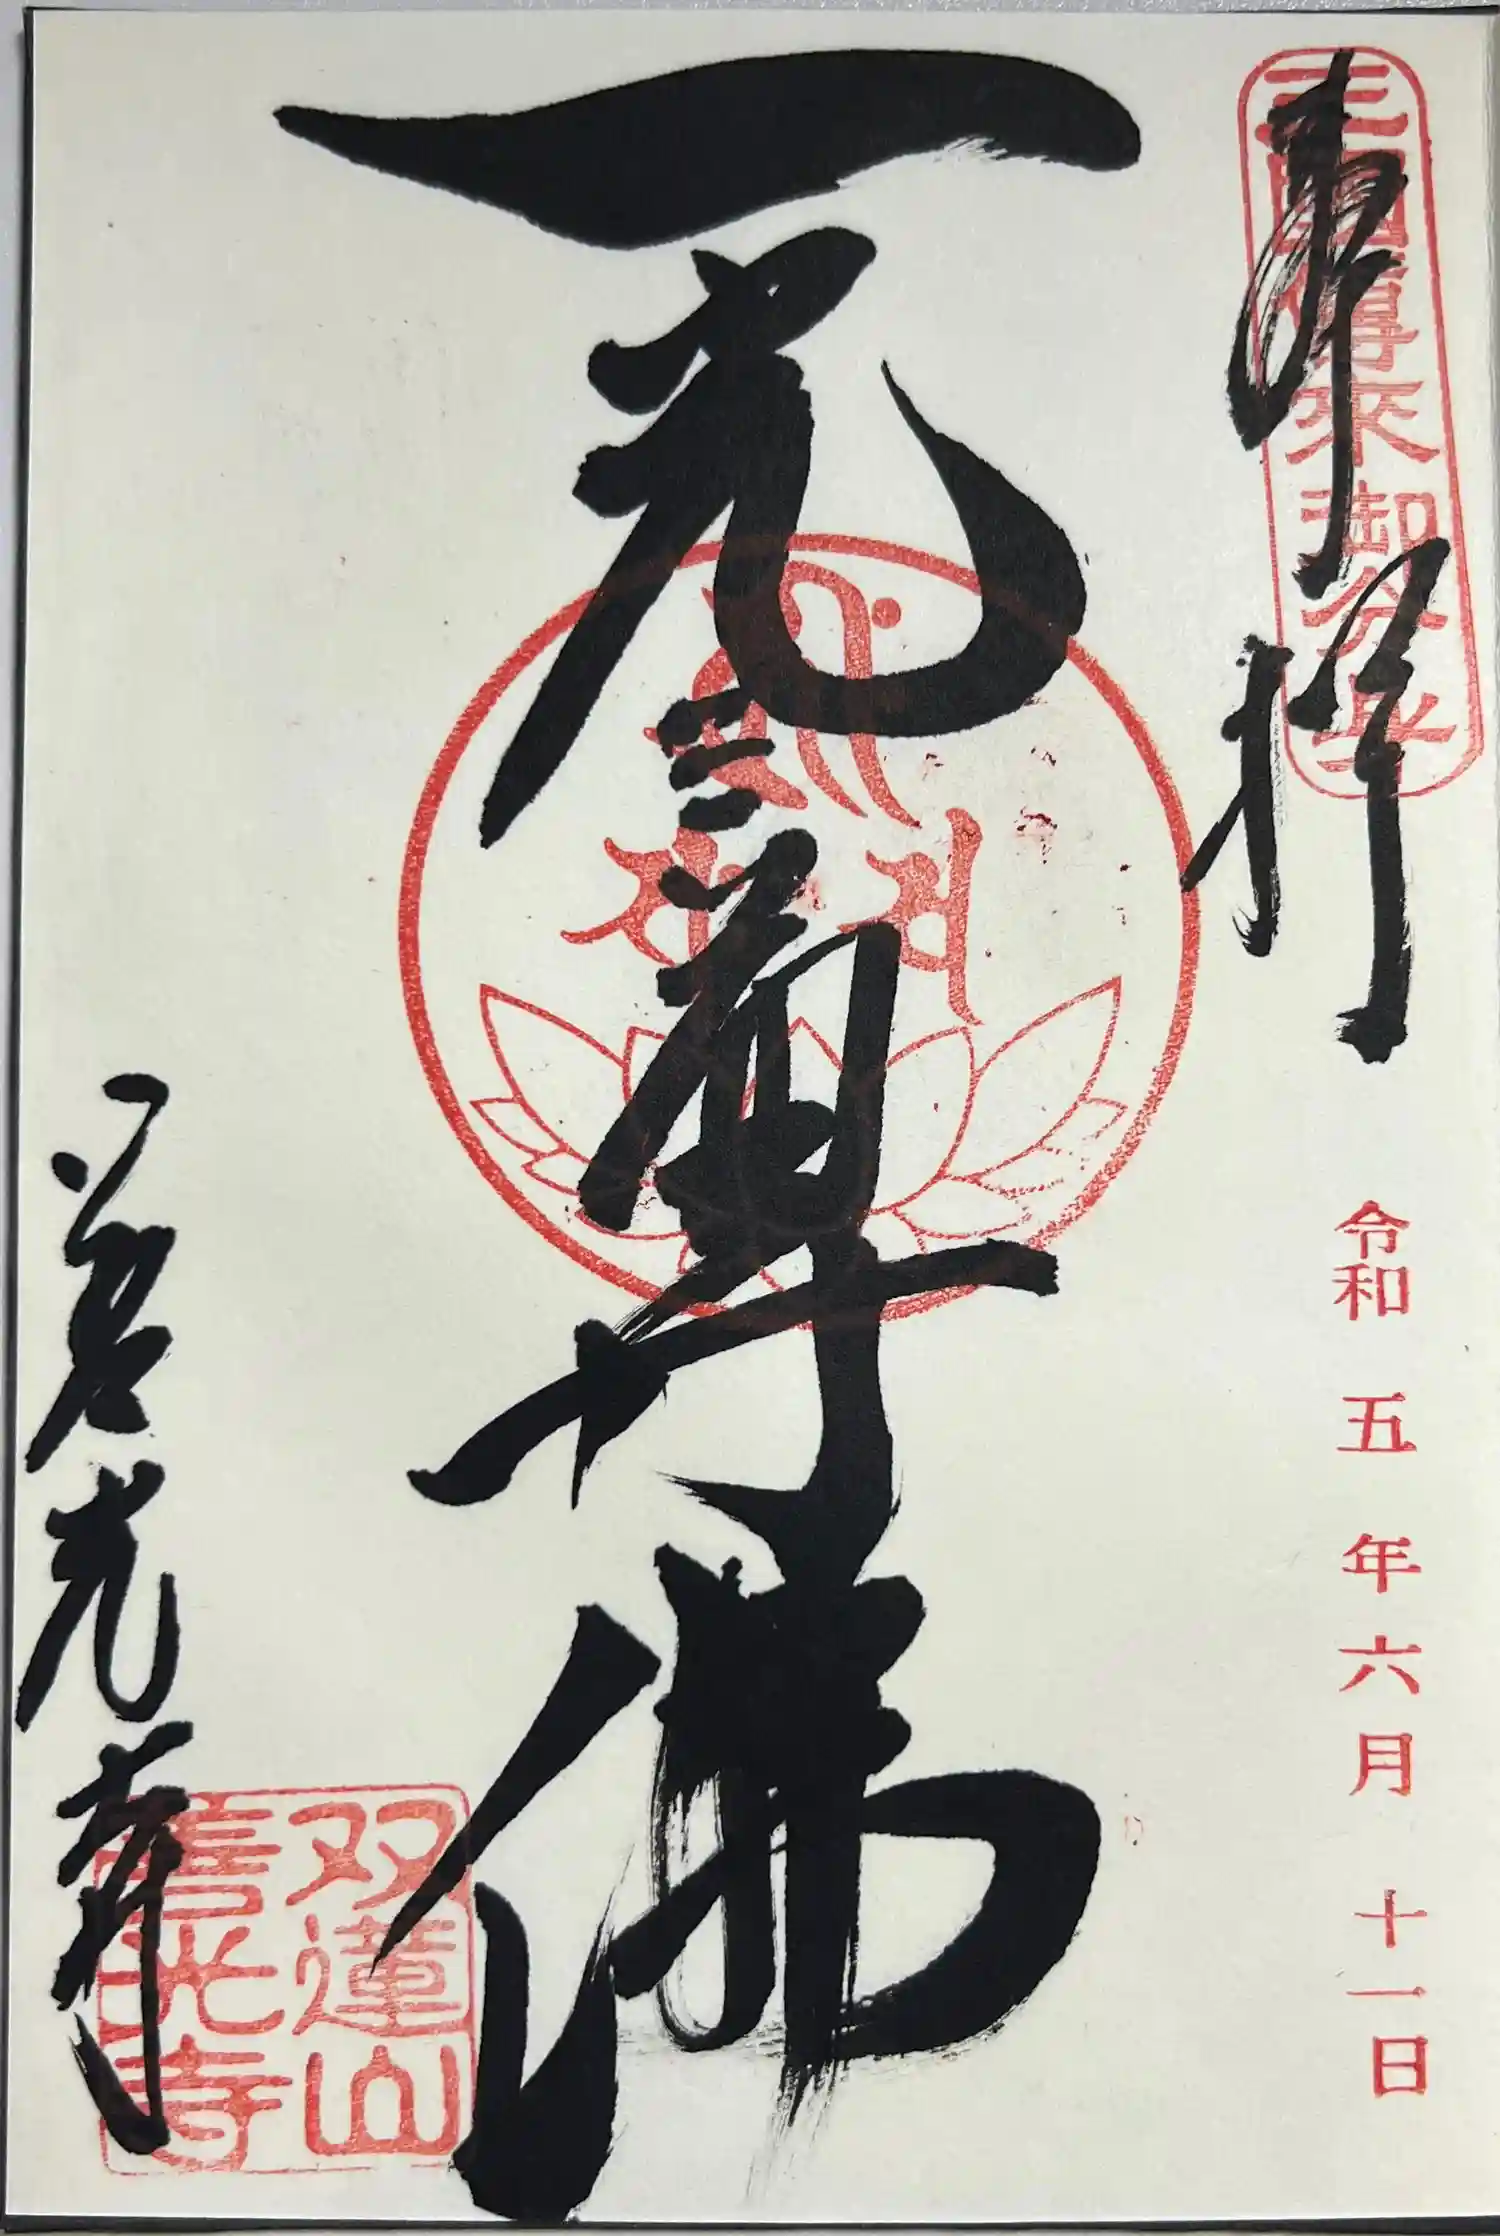 三國傳来御分身
奉拝
令和五年六月十一日
一光三尊佛
善光寺
双蓮山
善光寺